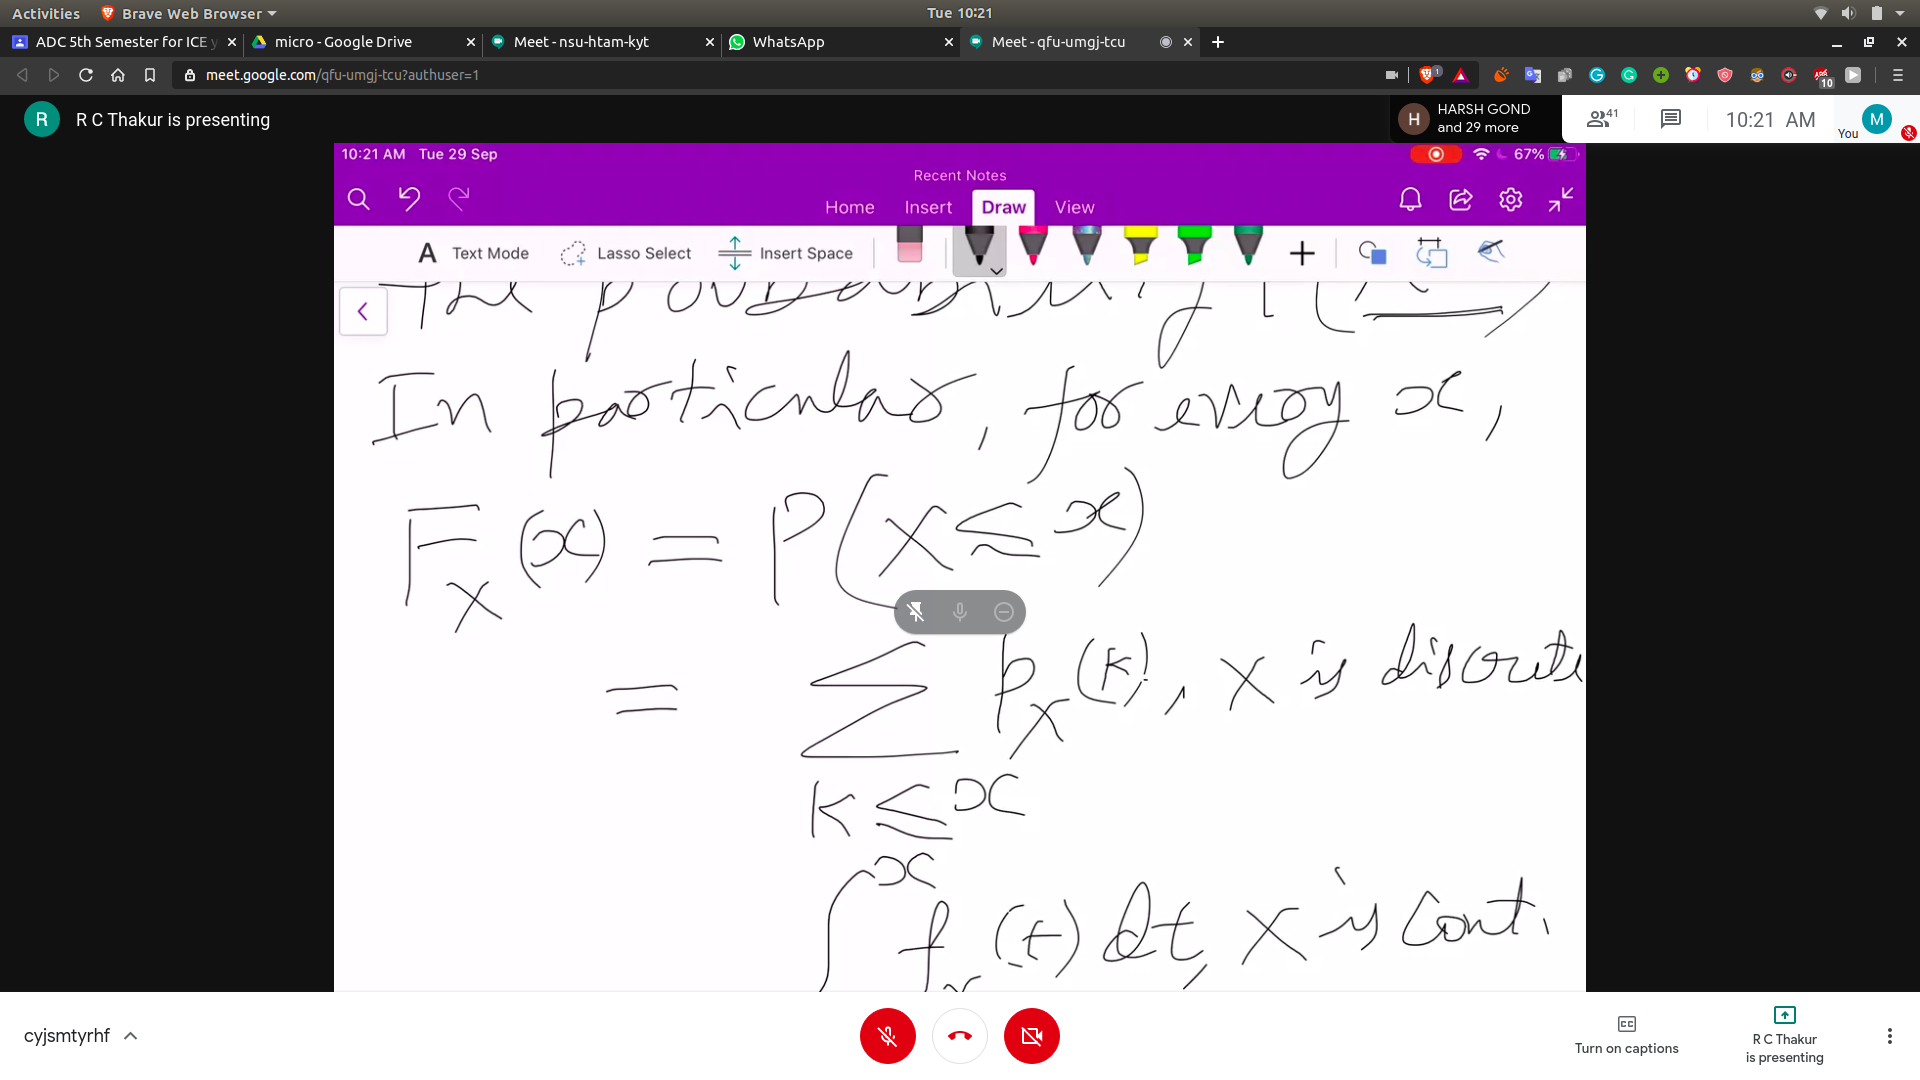 Activities Brave Web Browser Tue 10:21
ADC 5th Semester for ICE y micro - Google Drive Meet - nsu-htam-kyt WhatsApp Meet - qfu-umgj-tcu
meet.google.com/qfu-umgj-tcu?authuser=1 1 10
R R C Thakur is presenting H HARSH GOND and 29 more 41 10:21 AM You M
10:21 AM Tue 29 Sep 67%
Recent Notes
Home Insert Draw View
A Text Mode Lasso Select Insert Space
The probability P(X
In particular, for every x,
F_X(x) = P(X ≤ x)
= Σ p_X(k), X is discrete
k ≤ x
∫ x f_X(t) dt, X is Cont.
cyjsmtyrhf Turn on captions R C Thakur is presenting